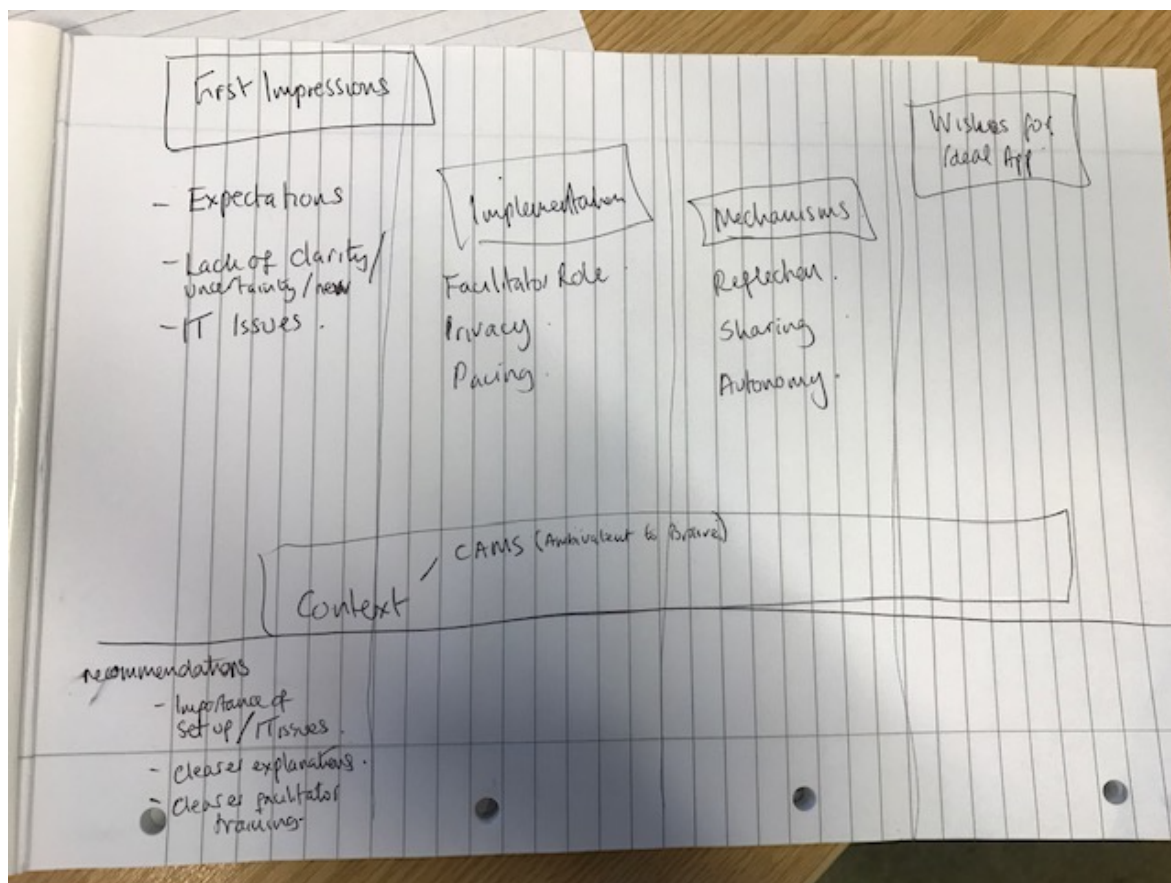 First Impressions
- Expectations
- Lack of clarity/
uncertainty/new
- IT Issues.
Implementation
Facilitator Role
Privacy
Pacing.
Mechanisms
Reflection.
Sharing
Autonomy.
Wishes for
Ideal App
CAMS (Ambivalent to
Context
recommendations
- Importance of
set up/IT issues.
- Clearer explanations.
- Clearer facilitator
training.